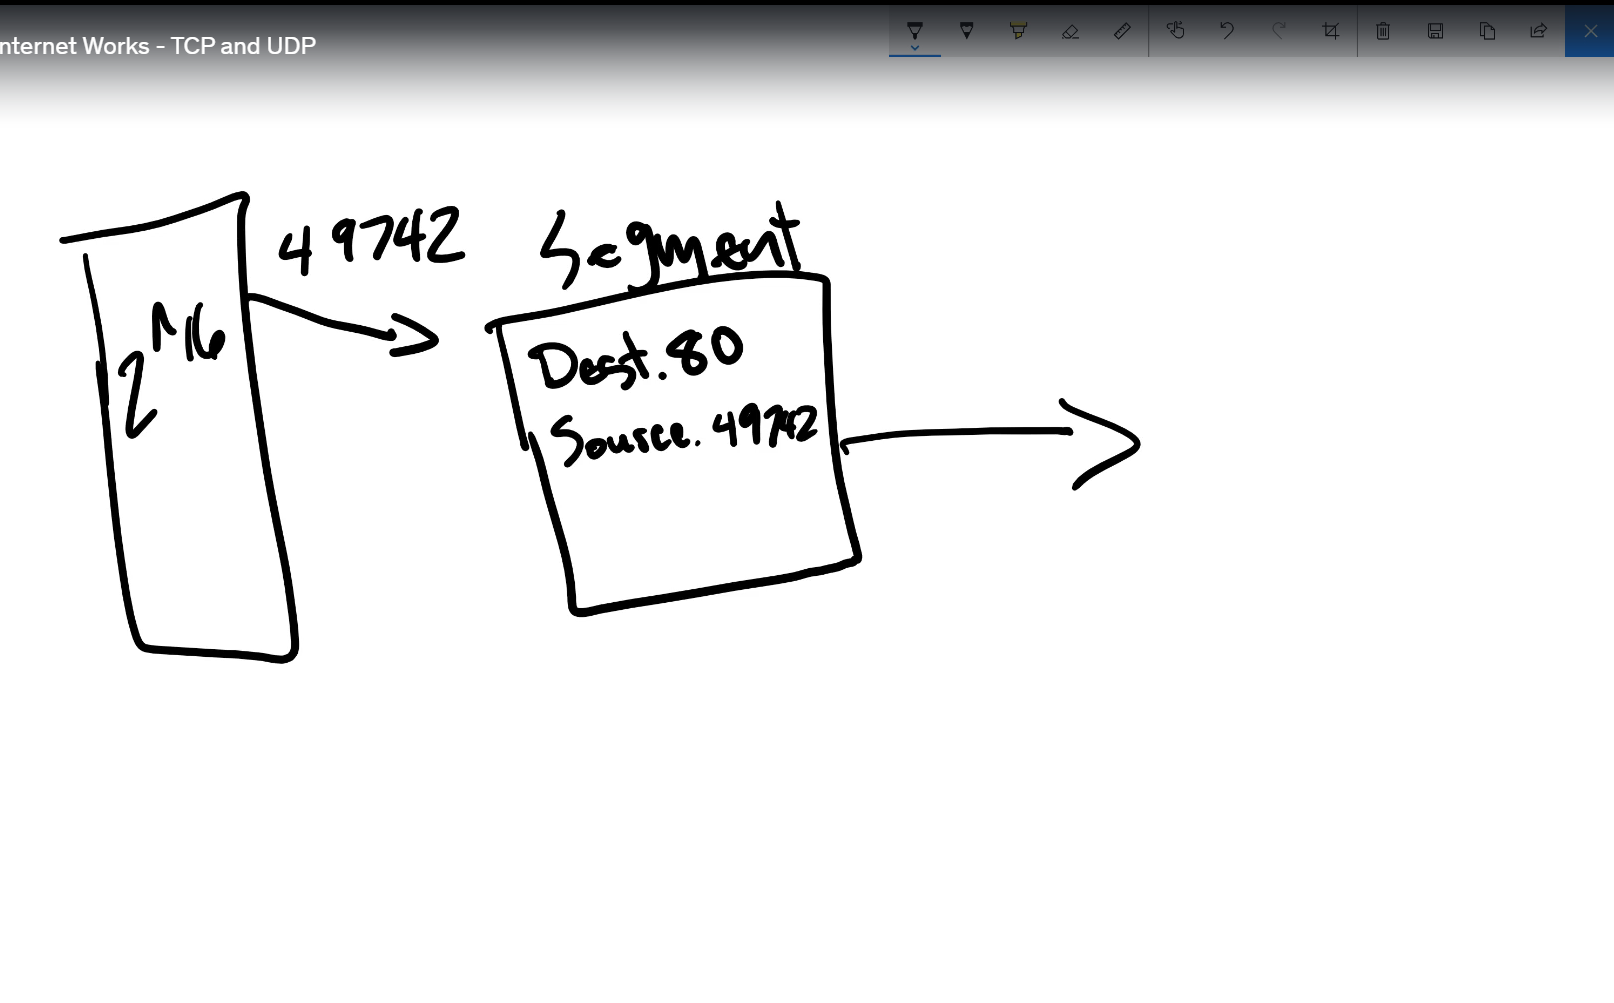 nternet Works - TCP and UDP
49742
Segment
2^16
Dest. 80
Source. 49742